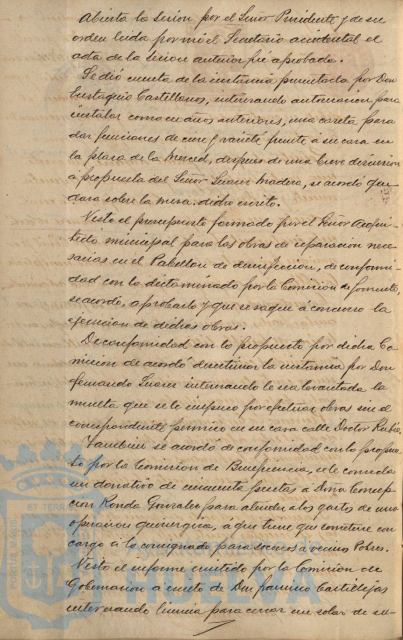 Abierta la sesion por el Señor Presidente y de su
orden leida por mi el Secretario accidental el
acta de la sesion anterior fué aprobada.
Se dió cuenta de la instancia presentada por Don
Eustaquio Castellano, interesando autorizacion para
instalar como en años anteriores, una caseta para
dar funciones de cine y varieté frente á su casa en
la plaza de la Merced, despues de una breve discusion
a propuesta del Señor Suarez Madera, se acordó que
dara sobre la mesa dicho escrito.
Visto el presupuesto formado por el Señor Arqui-
tecto municipal para las obras de reparacion nece
sarias en el Pabellon de desinfeccion, de conformi-
dad con lo dictaminado por la Comision de fomento,
se acordo, aprobarlo y que se saque á concurso la
ejecucion de dichas obras.
De conformidad con lo propuesto por dicha Co
mision se acordó desestimar la instancia por Don
Fernando Suarez interesando le sea levantada la
multa que se le impuso por efectuar obras sin el
correspondiente permiso en su casa calle Doctor Rubio.
Tambien se acordó de conformidad con lo propues
to por la Comision de Beneficencia, se le conceda
un donativo de cincuenta pesetas á Doña Concep
cion Rondá Gonzalez para atender a los gastos de una
operacion quirurgica, á que tiene que someterse con
cargo á lo consignado para socorros a vecinos Pobres.
Visto el informe emitido por la Comision de
Gobernacion á escrito de Don Francisco Castillejos
interesando licencia para cercar un solar de su-
HUELVA